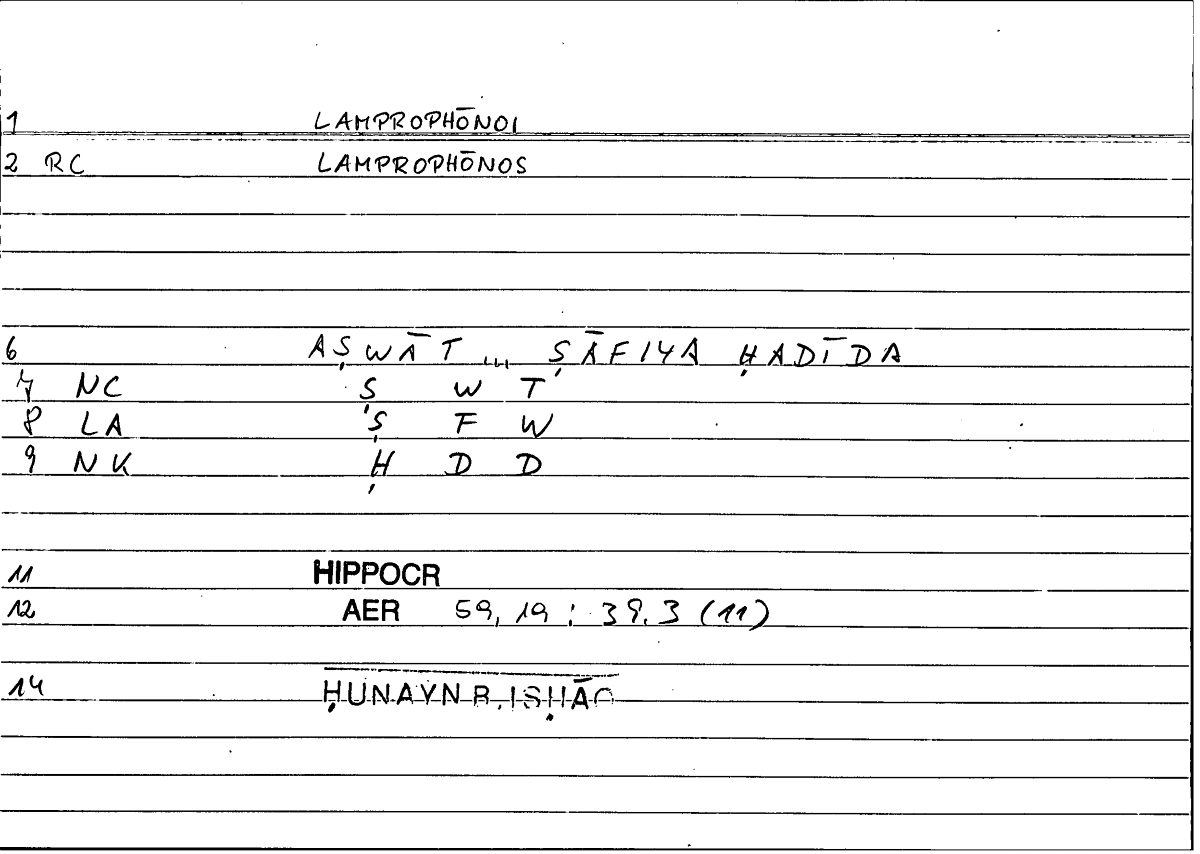 1 LAMPROPHŌNOI
2 RC LAMPROPHŌNOS
6 AṢWĀT ... ṢĀFIYA ḤADĪDA
7 NC Ṣ W T
8 LA Ṣ F W
9 NK Ḥ D D
11 HIPPOCR
12 AER 59, 19 : 39.3 (11)
14 ḤUNAYN B. ISḤĀQ